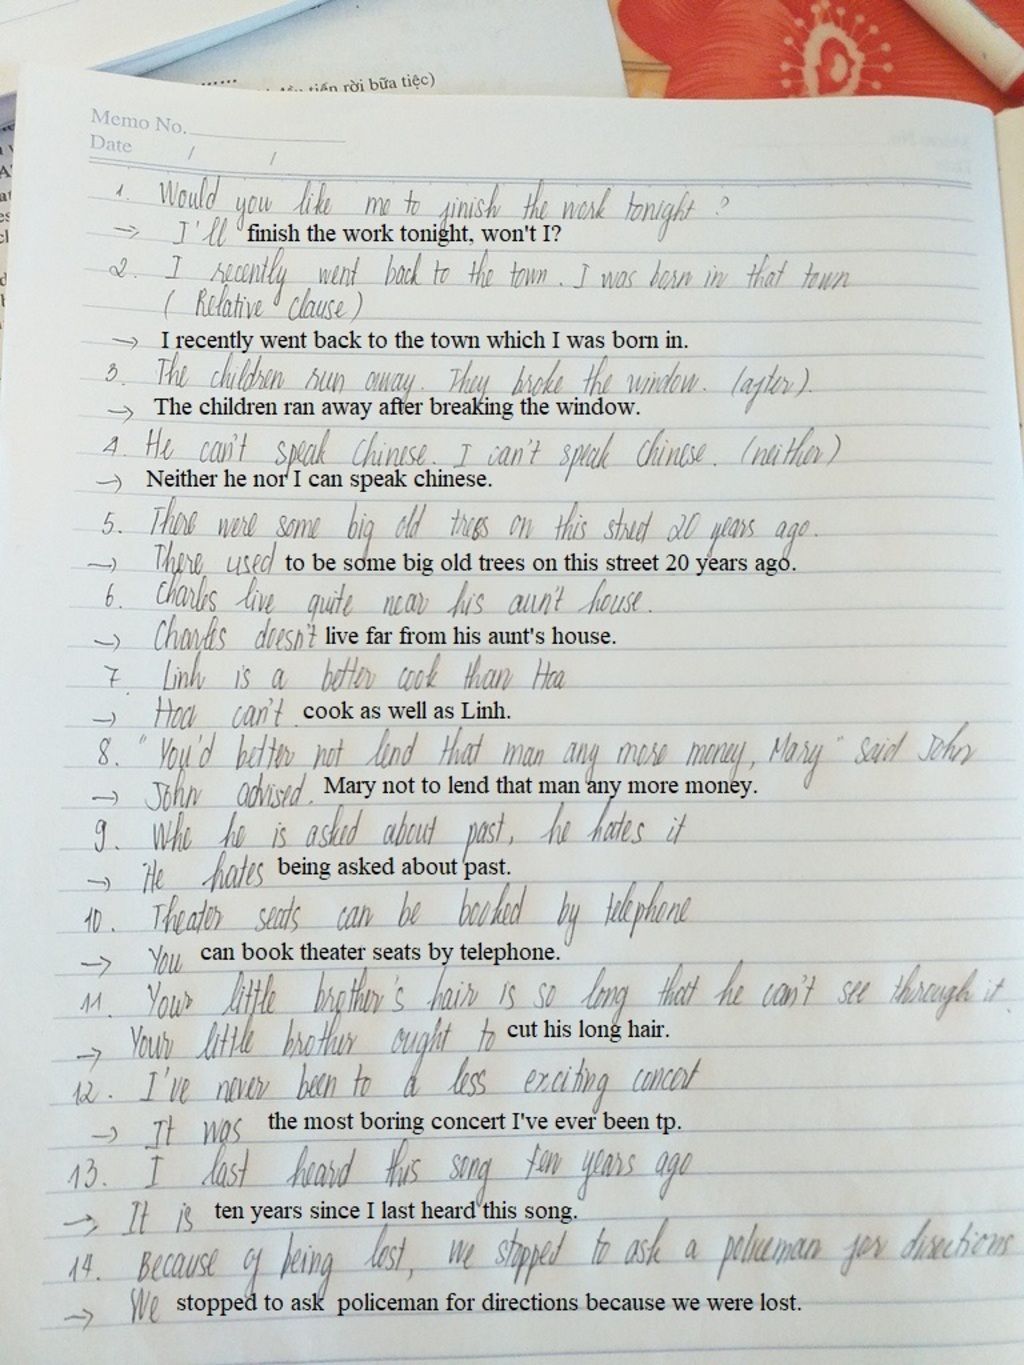 tiến rời bữa tiệc)
Memo No.
Date / /
1. Would you like me to finish the work tonight ?
→ I'll finish the work tonight, won't I?
2. I recently went back to the town. I was born in that town
( Relative clause )
→ I recently went back to the town which I was born in.
3. The children run away. They broke the window. (after).
→ The children ran away after breaking the window.
4. He can't speak Chinese. I can't speak Chinese. (neither)
→ Neither he nor I can speak chinese.
5. There were some big old trees on this street 20 years ago.
→ There used to be some big old trees on this street 20 years ago.
6. Charles live quite near his aun't house.
→ Charles doesn't live far from his aunt's house.
7. Linh is a better cook than Hoa
→ Hoa can't cook as well as Linh.
8. "You'd better not lend that man any more money, Mary" said John
→ John advised. Mary not to lend that man any more money.
9. Whe he is asked about past, he hates it
→ He hates being asked about past.
10. Theater seats can be booked by telephone
→ You can book theater seats by telephone.
11. Your little brother's hair is so long that he can't see through it.
→ Your little brother ought to cut his long hair.
12. I've never been to a less exciting concert
→ It was the most boring concert I've ever been tp.
13. I last heard this song ten years ago
→ It is ten years since I last heard this song.
14. Because of being lost, we stopped to ask a policeman for directions
→ We stopped to ask policeman for directions because we were lost.